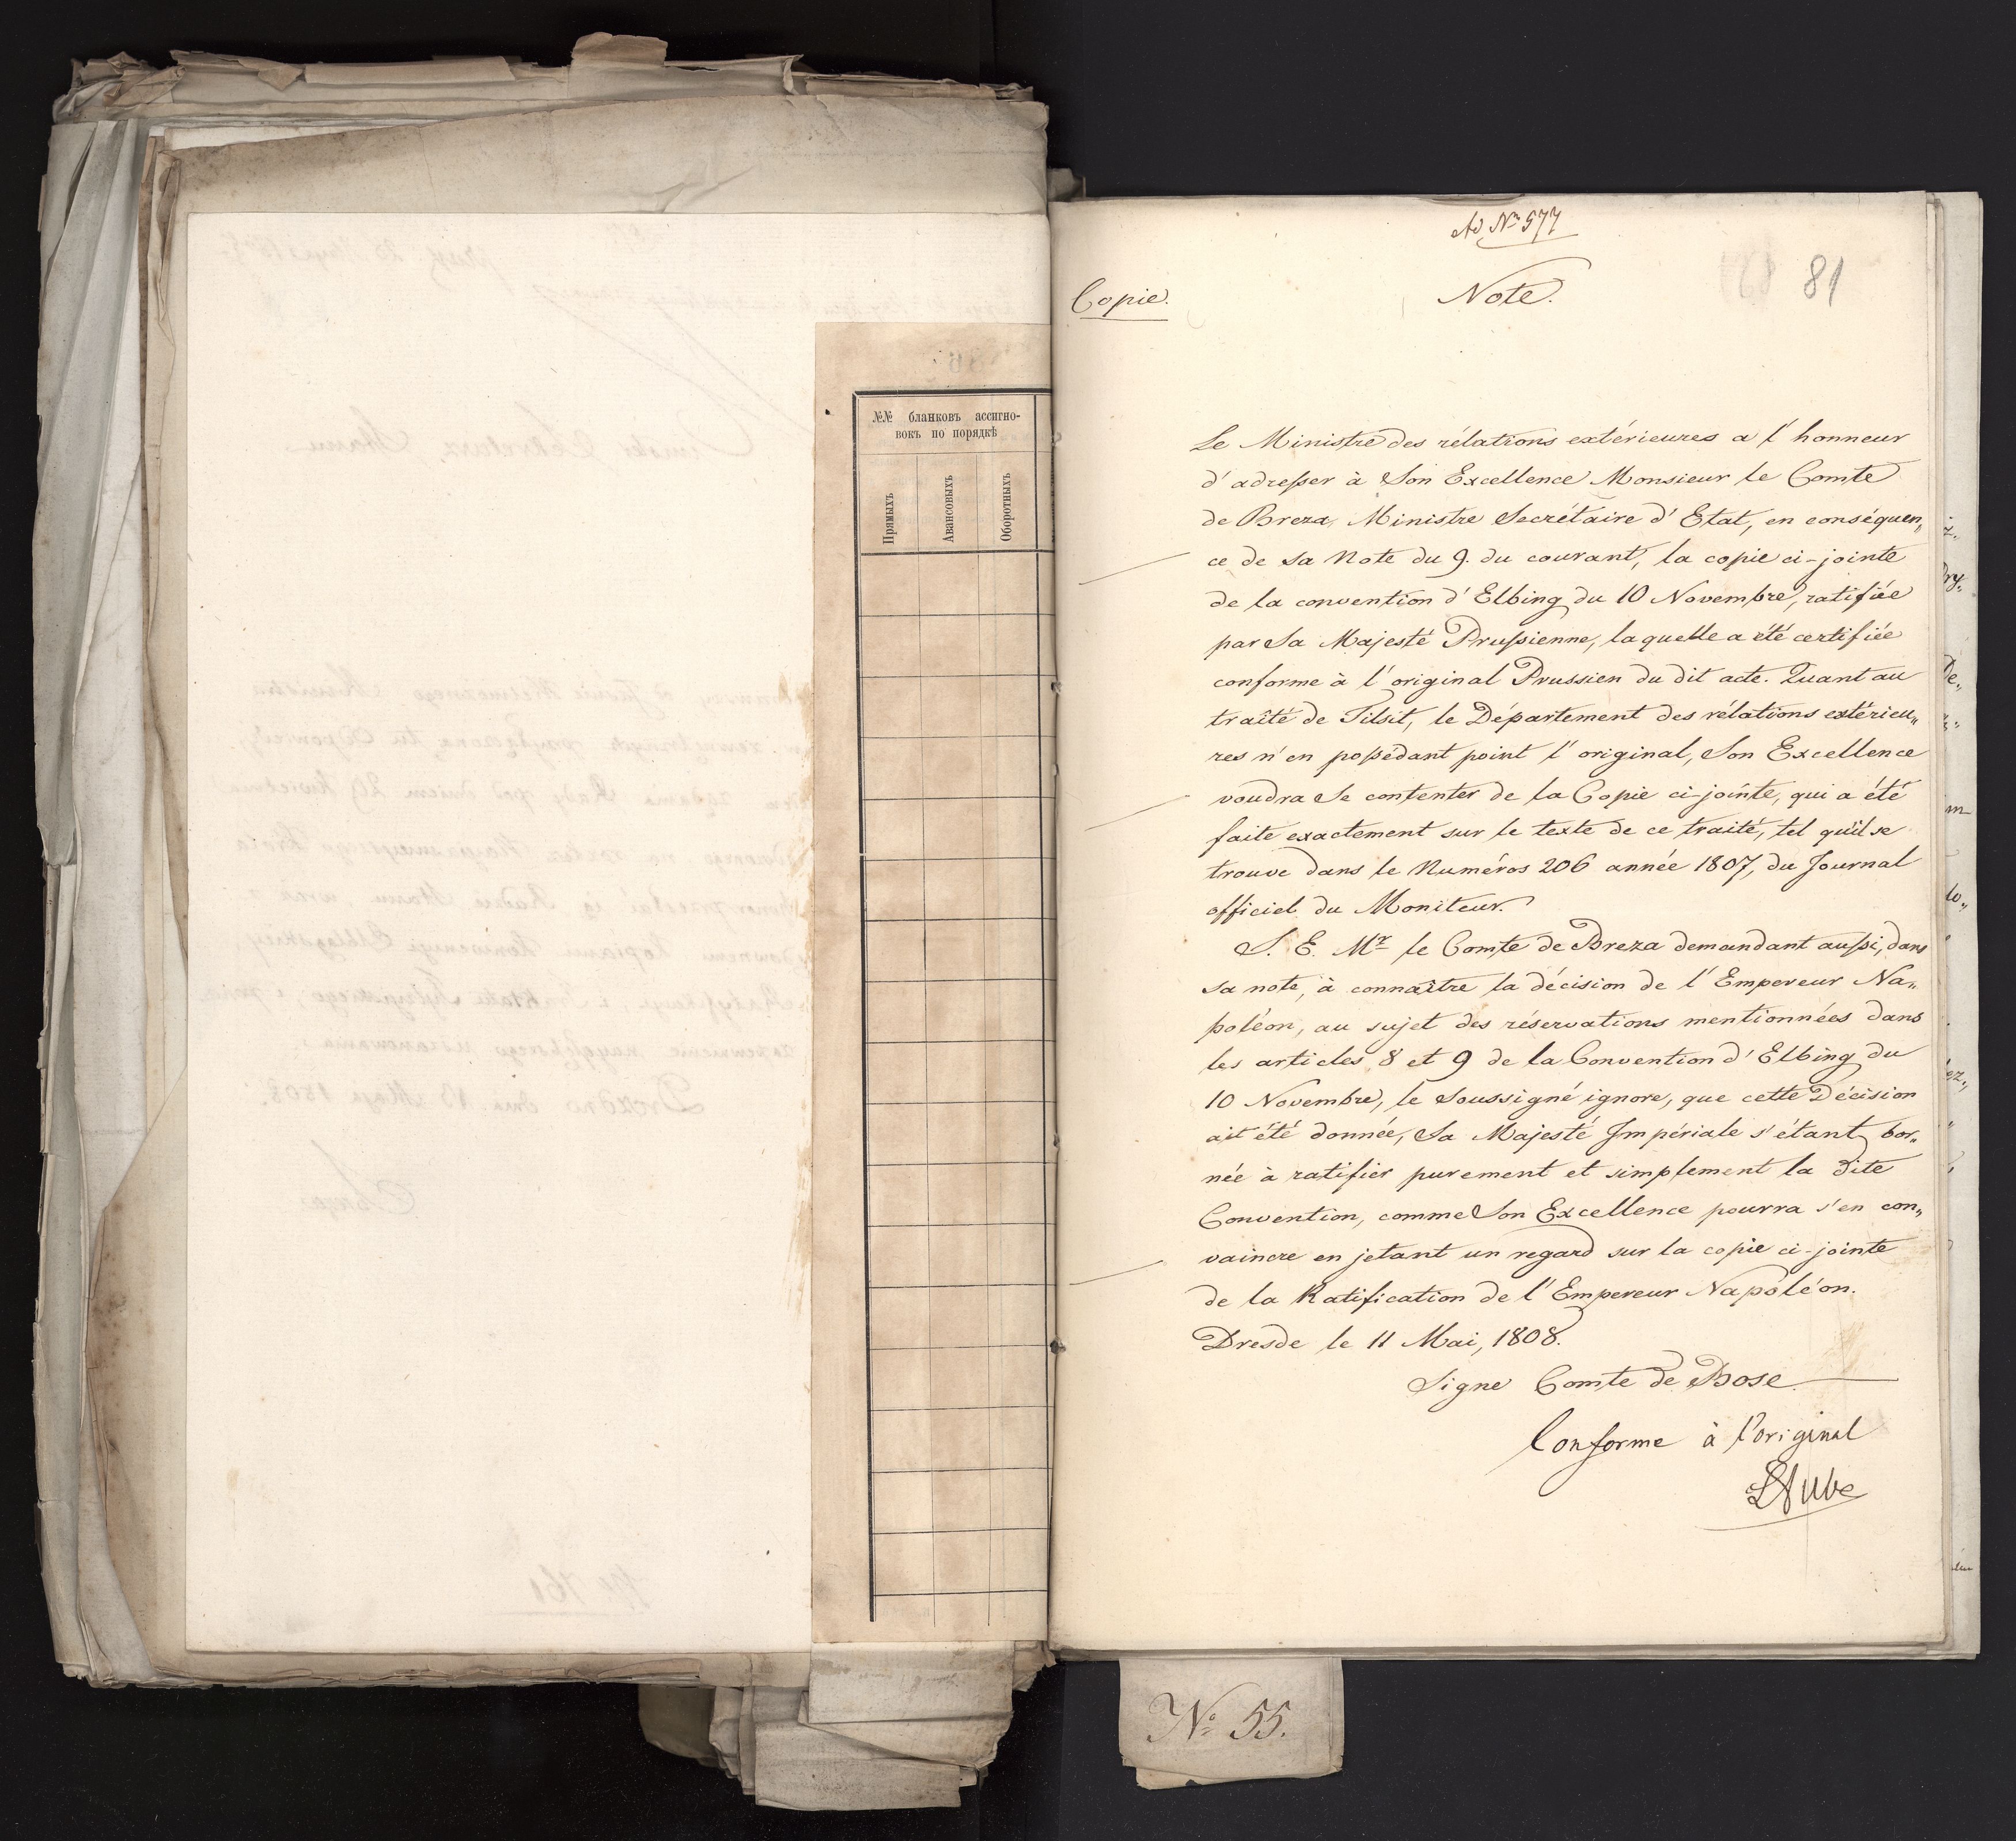 №№ бланковъ ассигно-
вокъ по порядкѣ
Прямыхъ
Авансовыхъ
Оборотныхъ
Ad Nro 577
81
Copie.
Note.
Le Ministre des rélations extérieures a l'honneur
d'adresser à Son Excellence Monsieur le Comte
de Breza, Ministre Secrétaire d'Etat, en conséquen„
ce de sa Note du 9. du courant, la copie ci-jointe
de la convention d'Elbing du 10 Novembre, ratifiée
par Sa Majesté Prussienne, laquelle a été certifiée
conforme à l'original Prussien du dit acte. Quant au
traîté de Tilsit, le Département des rélations extérieu„
res n'en possédant point l'original, Son Excellence
voudra se contenter de la Copie ci-jointe, qui a été
faite exactement sur le texte de ce traité, tel qu'il se
trouve dans le Numéros 206 année 1807, du Journal
officiel du Moniteur.
S. E. Mr le Comte de Breza demandant aussi, dans
sa note, à connaître la décision de l'Empereur Na„
poléon, au sujet des réservations mentionnées dans
les articles 8 et 9 de la Convention d'Elbing du
10 Novembre, le Soussigné ignore, que cette Décision
ait été donnée, Sa Majesté Impériale s'étant bor„
née à ratifier purement et simplement la dite
Convention, comme Son Excellence pourra s'en con„
vaincre en jetant un regard sur la copie ci-jointe
de la Ratification de l'Empereur Napoléon.
Dresde le 11 Mai, 1808.
Signe Comte de Bose
Conforme à l'original
No 55.